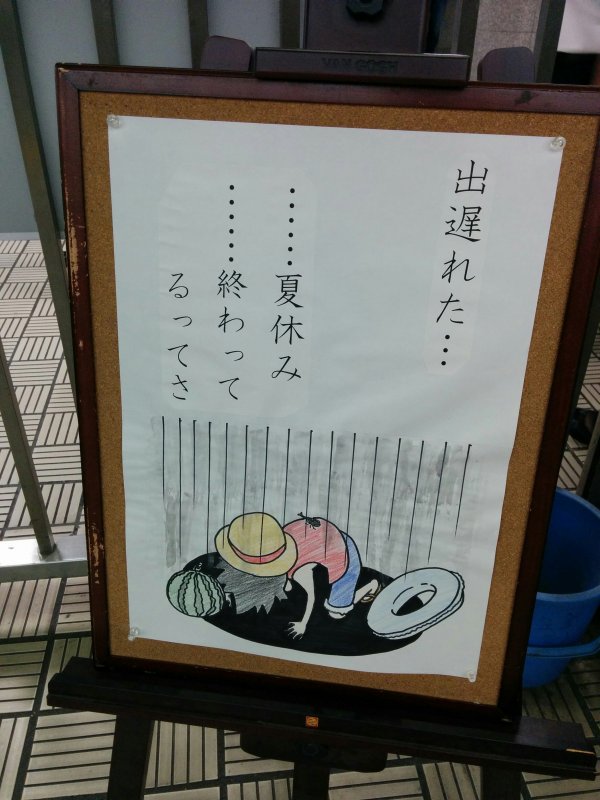 VAN GOGH
出遅れた…
……夏休み
……終わって
るってさ